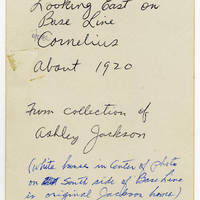 Looking East on
Base Line
Cornelius
About 1920
From collection of
Ashley Jackson
(White house in center of photo
on South side of Base Line
is original Jackson house)